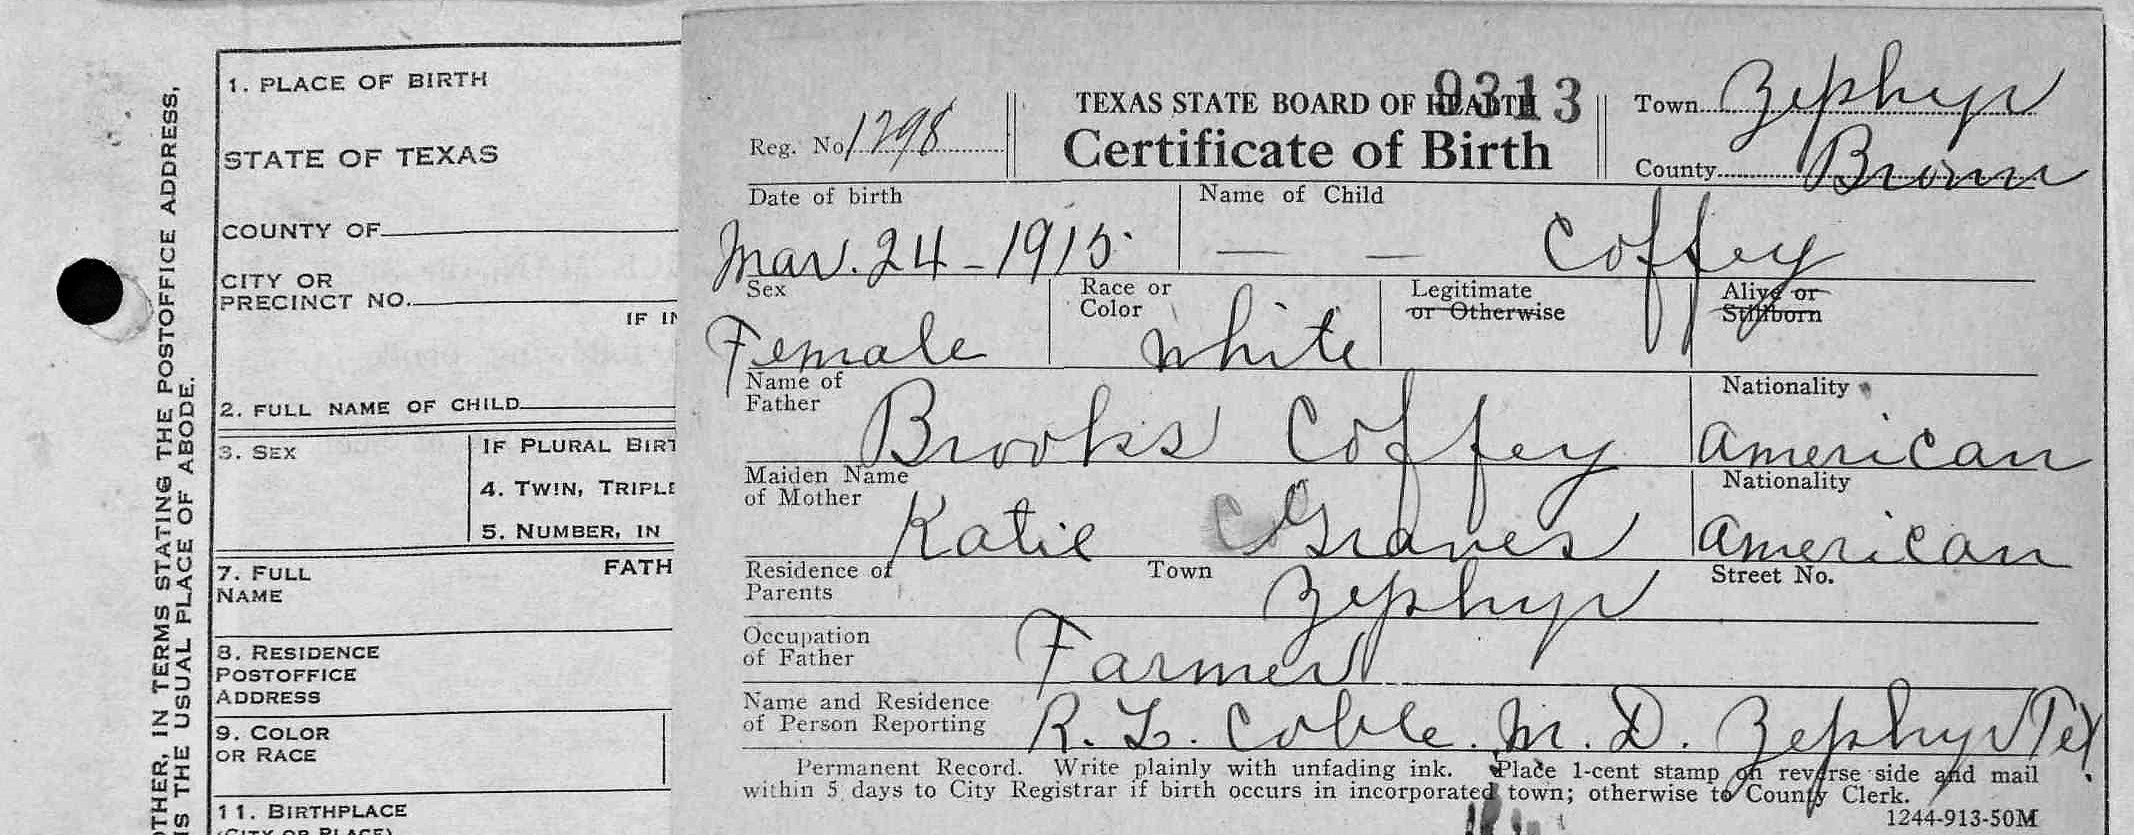 OTHER, IN TERMS STATING THE POSTOFFICE ADDRESS,
IS THE USUAL PLACE OF ABODE.
1. PLACE OF BIRTH
STATE OF TEXAS
COUNTY OF
CITY OR
PRECINCT NO.
IF IN
2. FULL NAME OF CHILD
3. SEX
IF PLURAL BIRT
4. TWIN, TRIPLE
5. NUMBER, IN
7. FULL
NAME
FATH
8. RESIDENCE
POSTOFFICE
ADDRESS
9. COLOR
OR RACE
11. BIRTHPLACE
(CITY OR PLACE)
9313
Reg. No. 1298
TEXAS STATE BOARD OF HEALTH
Certificate of Birth
Town Zephyr
County Brown
Date of birth
Name of Child
Mar. 24 - 1915.
— — Coffey
Sex
Race or
Color
Legitimate
or Otherwise
Alive or
Stillborn
Female
White
Name of
Father
Brooks Coffey
Nationality
American
Maiden Name
of Mother
Katie Graves
Nationality
American
Residence of
Parents
Town
Zephyr
Street No.
Occupation
of Father
Farmer
Name and Residence
of Person Reporting
R. L. Coble. M. D. Zephyr Tex.
Permanent Record. Write plainly with unfading ink. Place 1-cent stamp on reverse side and mail
within 5 days to City Registrar if birth occurs in incorporated town; otherwise to County Clerk.
1244-913-50M